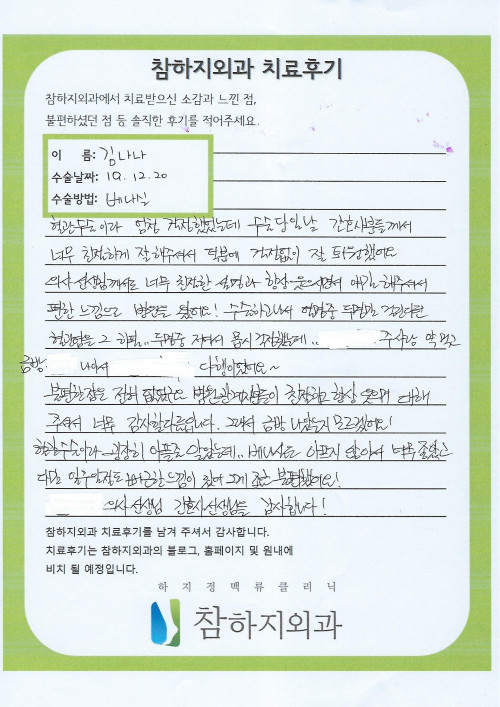 참하지외과 치료후기
참하지외과에서 치료받으신 소감과 느낀 점,
불편하셨던 점 등 솔직한 후기를 적어주세요.
이 름: 김나나
수술날짜: 19.12.20
수술방법: 베나실
혈관수술이라 엄청 걱정했었는데 수술당일날 간호사분들께서
너무 친절하게 잘해주셔서 덕분에 걱정없이 잘 퇴원했어요
의사선생님께서도 너무 친절한 설명과 항상 웃으시면서 얘기 해주셔서
편한 느낌으로 병원을 왔어요! 수술하고나서
혈관염을 그 하필.. 두명중 저여서 몹시 걱정했는데.. 주사랑 약 먹고
금방 나아서 다행이었어요~
불편한점은 전혀 없었구요 병원관계자분들이 친절하고 항상 웃으며 대해
주셔서 너무 감사할따름입니다. 그래서 금방 나았는지 모르겠어요!
혈관수술이라 굉장히 아플줄 알았는데.. 베나실은 아프지 않아서 너무 좋았고
다만 일주일정도 뻐근한 느낌이 있어 그게 조금 불편했어요!
의사선생님 간호사선생님들 감사합니다!
참하지외과 치료후기를 남겨 주셔서 감사합니다.
치료후기는 참하지외과의 블로그, 홈페이지 및 원내에
비치 될 예정입니다.
하지정맥류클리닉
참하지외과